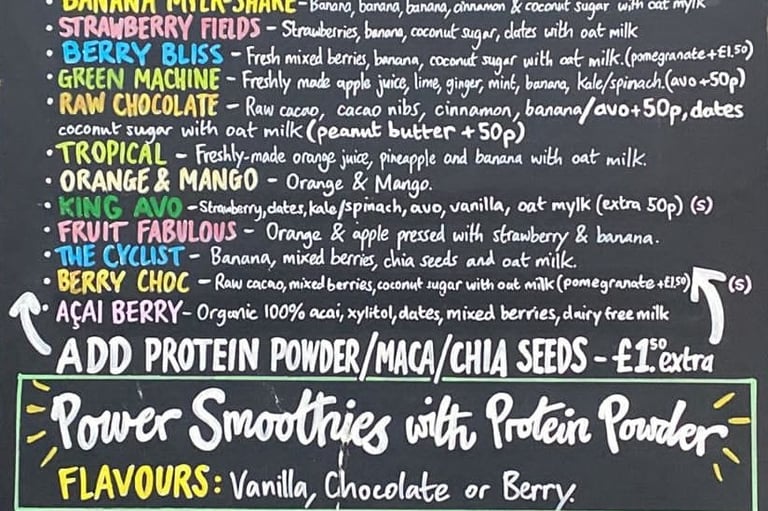 • BANANA MYLK-SHAKE - Banana, banana, banana, cinnamon & coconut sugar with oat mylk
• STRAWBERRY FIELDS - Strawberries, banana, coconut sugar, dates with oat milk
• BERRY BLISS - Fresh mixed berries, banana, coconut sugar with oat milk. (pomegranate +£1.50)
• GREEN MACHINE - Freshly made apple juice, lime, ginger, mint, banana, kale/spinach. (avo +50p)
• RAW CHOCOLATE - Raw cacao, cacao nibs, cinnamon, banana/avo+50p, dates
coconut sugar with oat milk (peanut butter +50p)
• TROPICAL - Freshly-made orange juice, pineapple and banana with oat milk.
• ORANGE & MANGO - Orange & Mango.
• KING AVO - Strawberry, dates, kale/spinach, avo, vanilla, oat mylk (extra 50p) (s)
• FRUIT FABULOUS - Orange & apple pressed with strawberry & banana.
• THE CYCLIST - Banana, mixed berries, chia seeds and oat milk.
• BERRY CHOC - Raw cacao, mixed berries, coconut sugar with oat milk (pomegranate +£1.50) (s)
• AÇAI BERRY - Organic 100% acai, xylitol, dates, mixed berries, dairy free milk
ADD PROTEIN POWDER/MACA/CHIA SEEDS - £1.50 extra
Power Smoothies with Protein Powder
FLAVOURS: Vanilla, Chocolate or Berry.